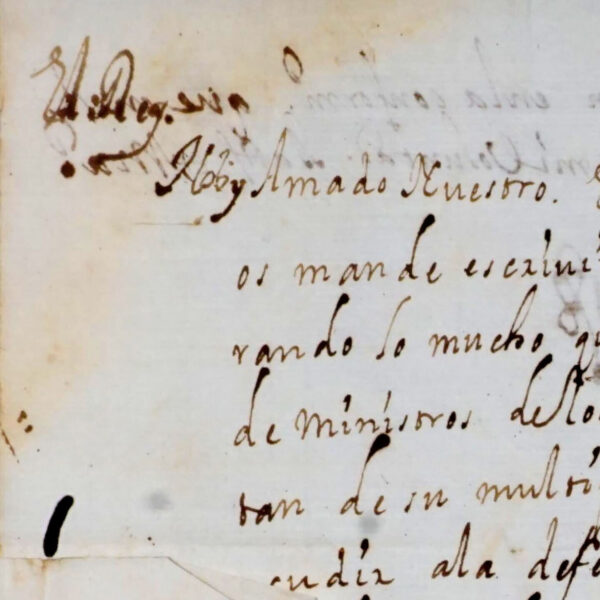 El Rey.
Amado Nuestro.
os mande escrivi
rando lo mucho qu
de Ministros de lo
tan de su multi
udir ala defe